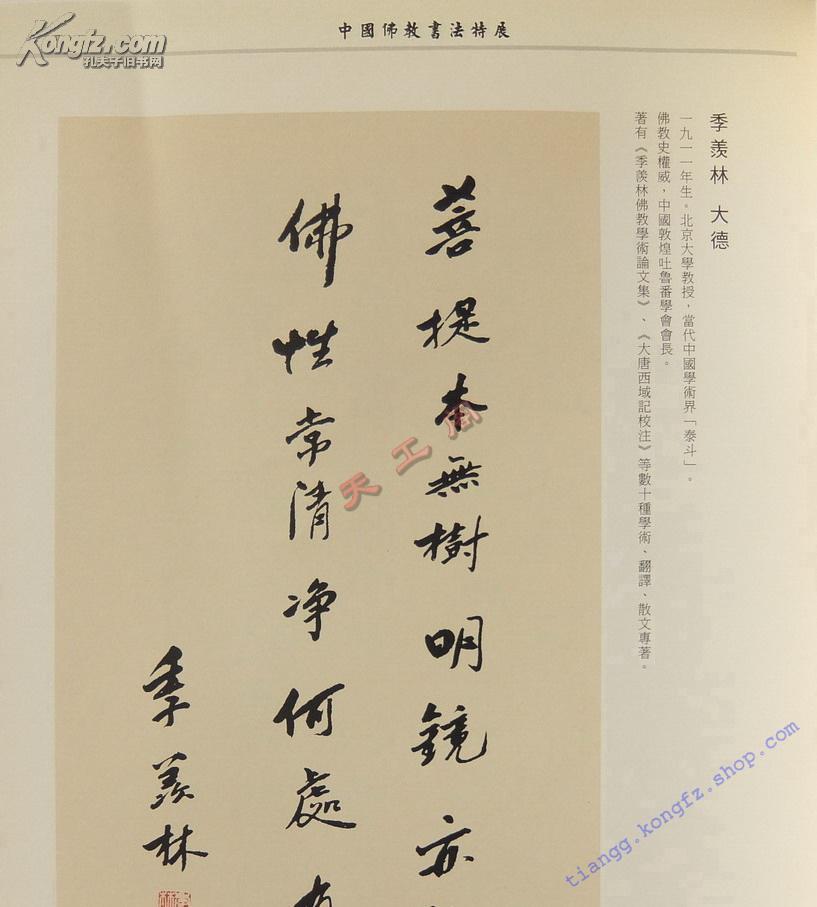 Kongfz.com
孔夫子旧书网
中國佛教書法特展
季羨林 大德
一九一一年生。北京大學教授，當代中國學術界「泰斗」。
佛教史權威，中國敦煌吐魯番學會會長。
著有《季羨林佛教學術論文集》、《大唐西域記校注》等數十種學術、翻譯、散文專著。
菩提本無樹明鏡亦
佛性常清净何處有
季羨林
天工阁
tiangg.kongfz.shop.com